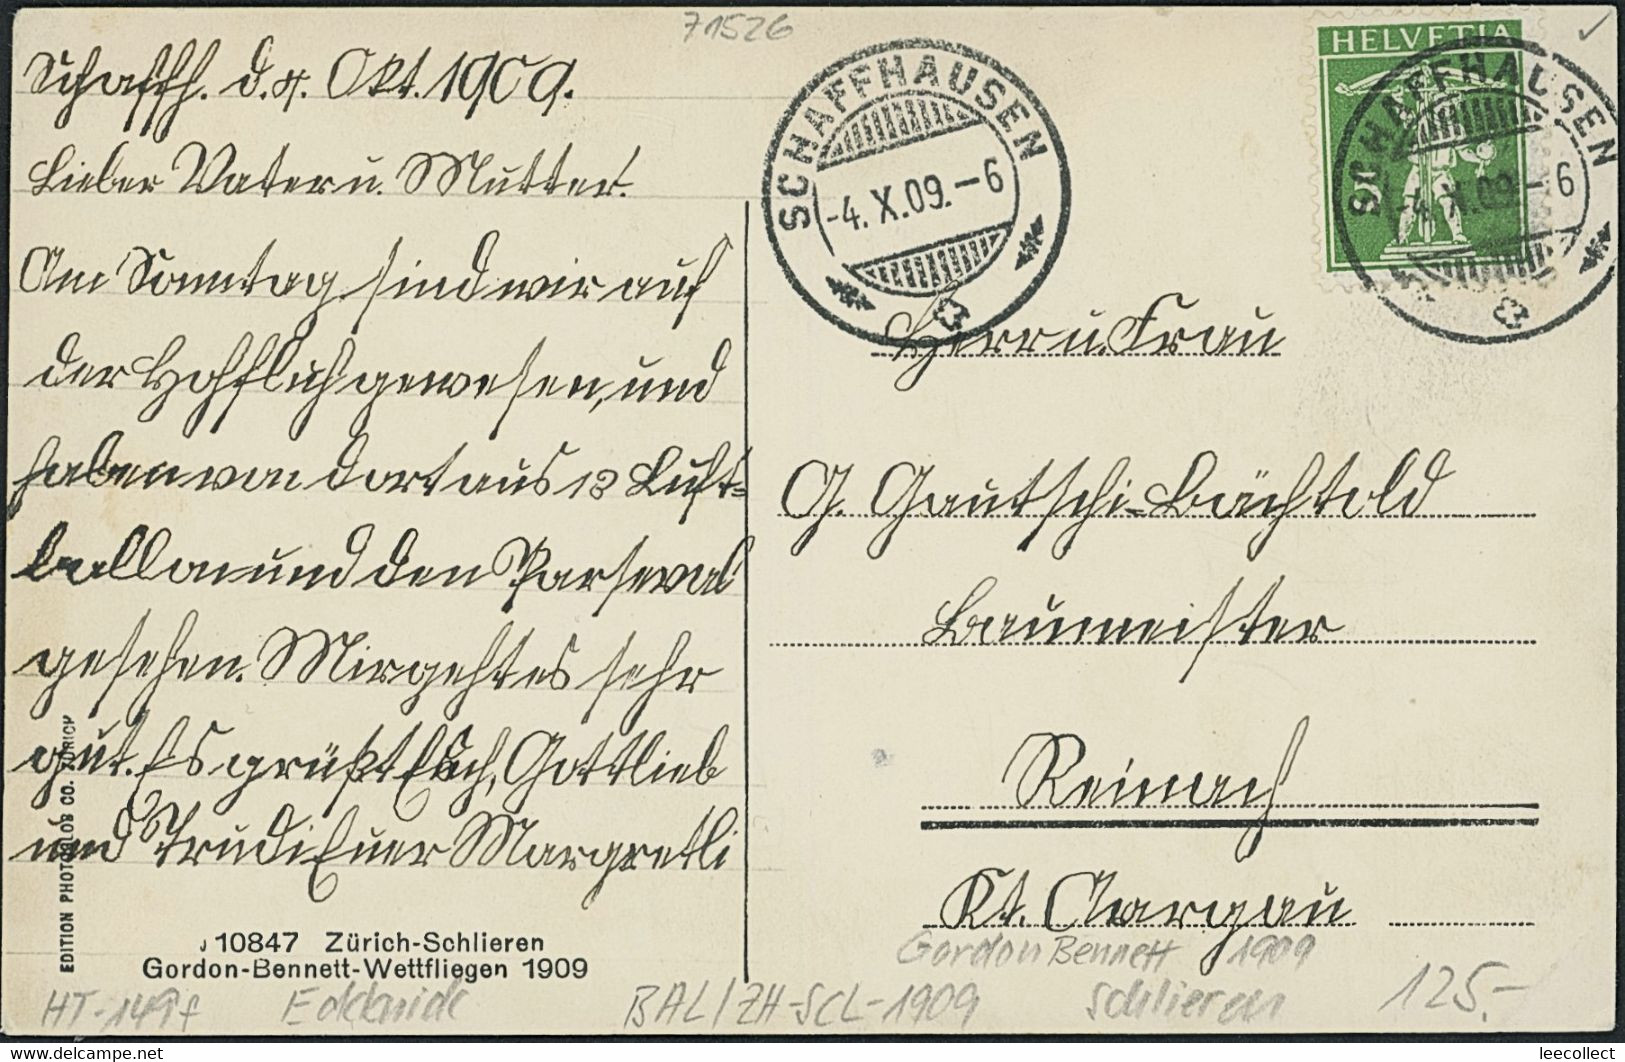 71526
Schaffh. d. 4. Okt. 1909.
Lieber Vater u. Mutter.
Am Sonntag sind wir auf
der Hohfluh gewesen, und
haben von dort aus 13 Luft-
ballon und den Parseval
gesehen. Mir geht es sehr
gut. Es grüßt Euch, Gottlieb
und Trudi Euer Margretli
J 10847 Zürich-Schlieren
Gordon-Bennett-Wettfliegen 1909
EDITION PHOTOGLOB CO. ZÜRICH
SCHAFFHAUSEN
-4.X.09.-6
HELVETIA
SCHAFFHAUSEN
-4.X.09.-6
Herr u. Frau
G. Gautschi-Bächtold
Baumeister
Reinach
Kt. Aargau
Gordon Bennett 1909
HT-149f
BAL/ZH-SCL-1909
Schlieren
125.-
leecollect